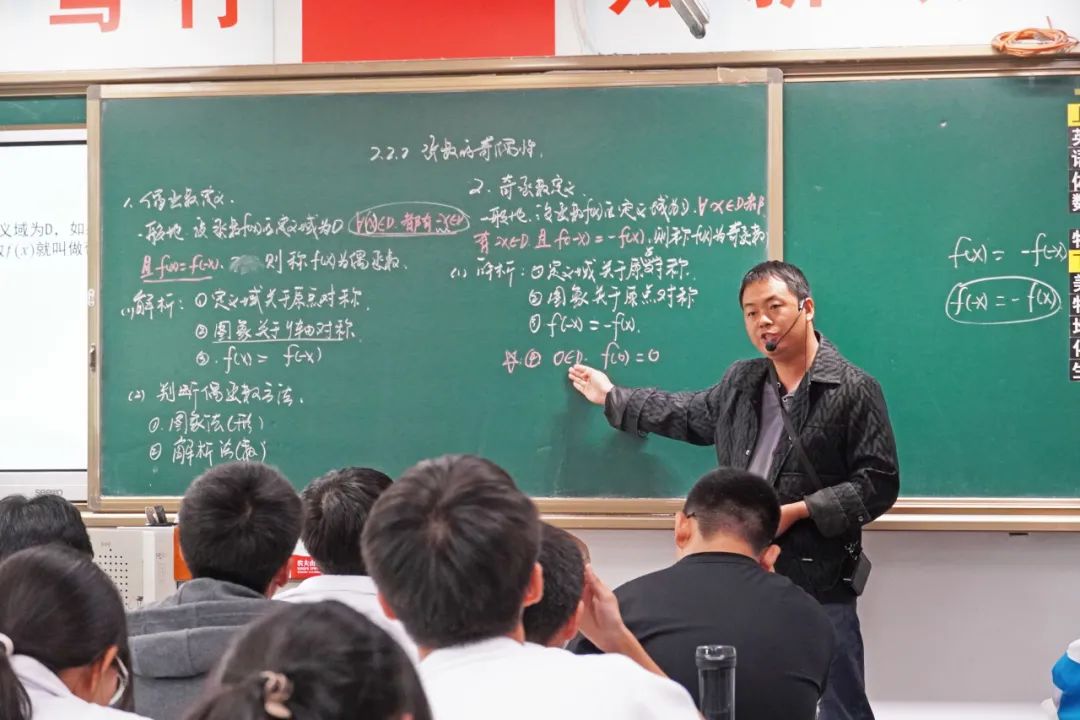 2.2.2 函数的奇偶性.
1. 偶函数定义.
一般地 设函数f(x)的定义域为D ∀x∈D 都有 -x∈D
且 f(x)=f(-x). 则称 f(x)为偶函数.
(1)解析: ① 定义域关于原点对称.
② 图象关于y轴对称.
③. f(x) = f(-x)
(2) 判断偶函数方法.
①. 图象法(形)
② 解析法(数)
2. 奇函数定义.
一般地. 设函数f(x)的定义域为D. ∀x∈D 都
有 -x∈D 且 f(-x) = -f(x). 则称f(x)为奇函数
(1) 解析: ①定义域关于原点对称.
② 图象关于原点对称
③ f(-x) = -f(x).
④ 0∈D. f(0) = 0
f(x) = -f(-x)
f(-x) = -f(x)
义域为D, 如
f(x)就叫做
英
语
数
特
美
特
生
农夫山